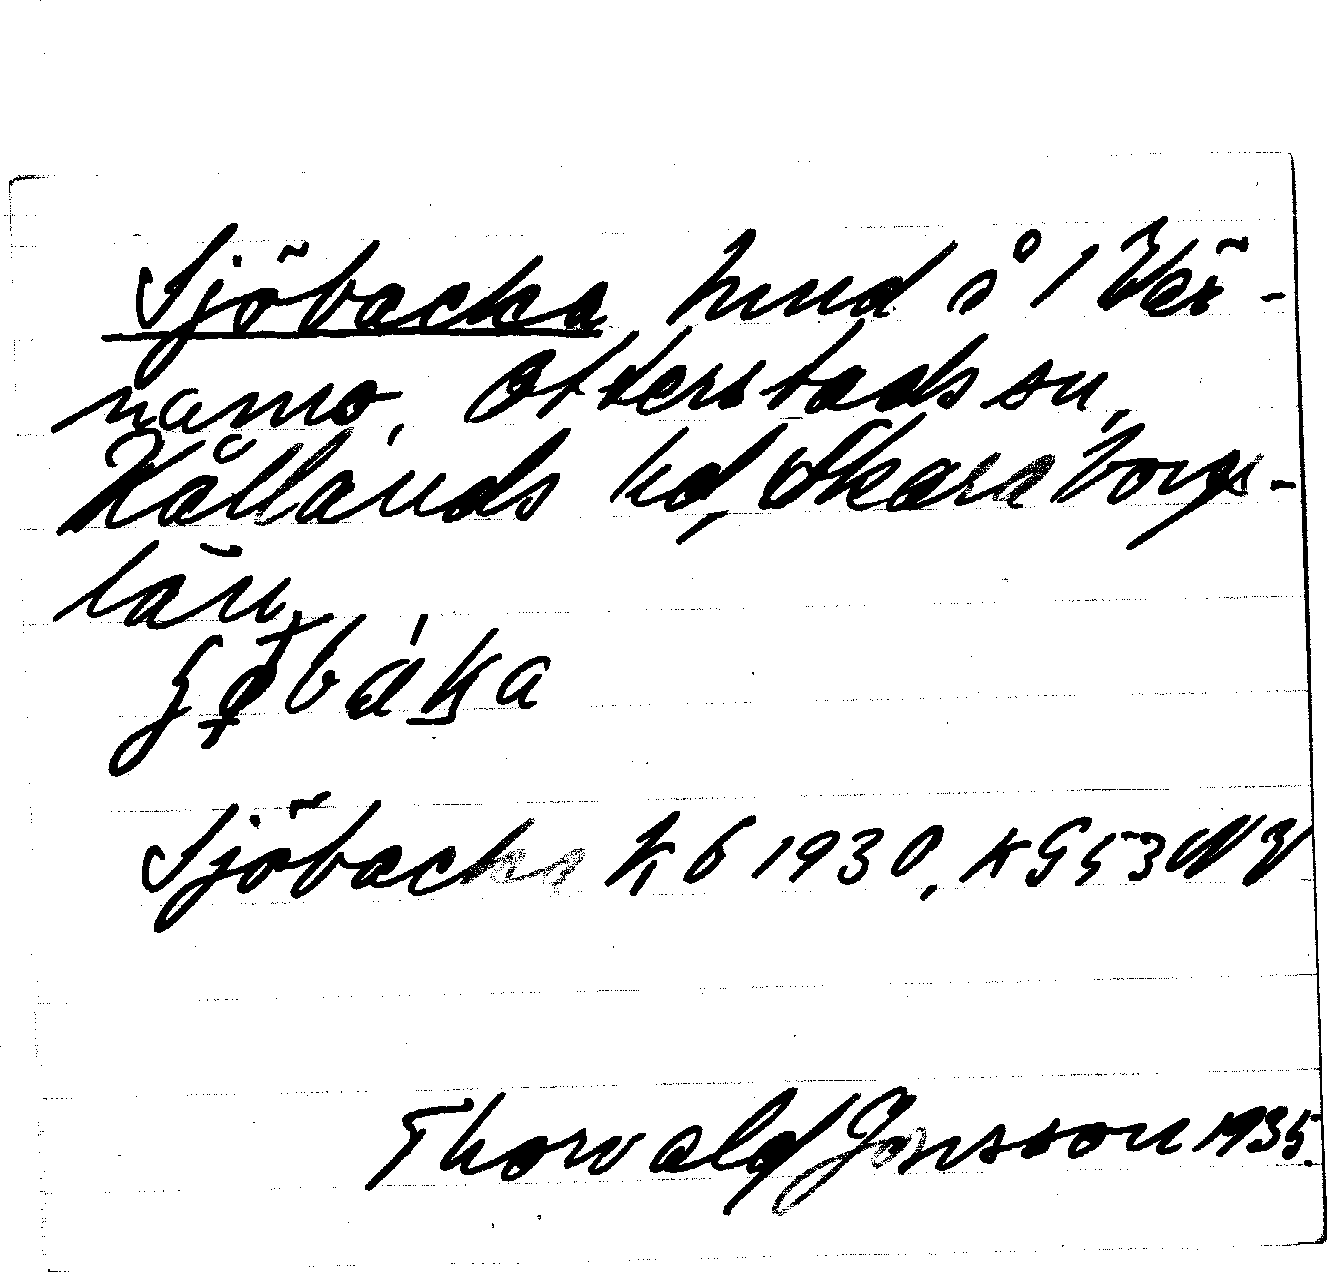 Sjöbacka hmd å 1 Vär-
namo, Otterstads sn,
Kållands hd, Skaraborgs-
län.
Sjöbacka Kb 1930, K G 53 NV
Thorvald Jonsson 1935.